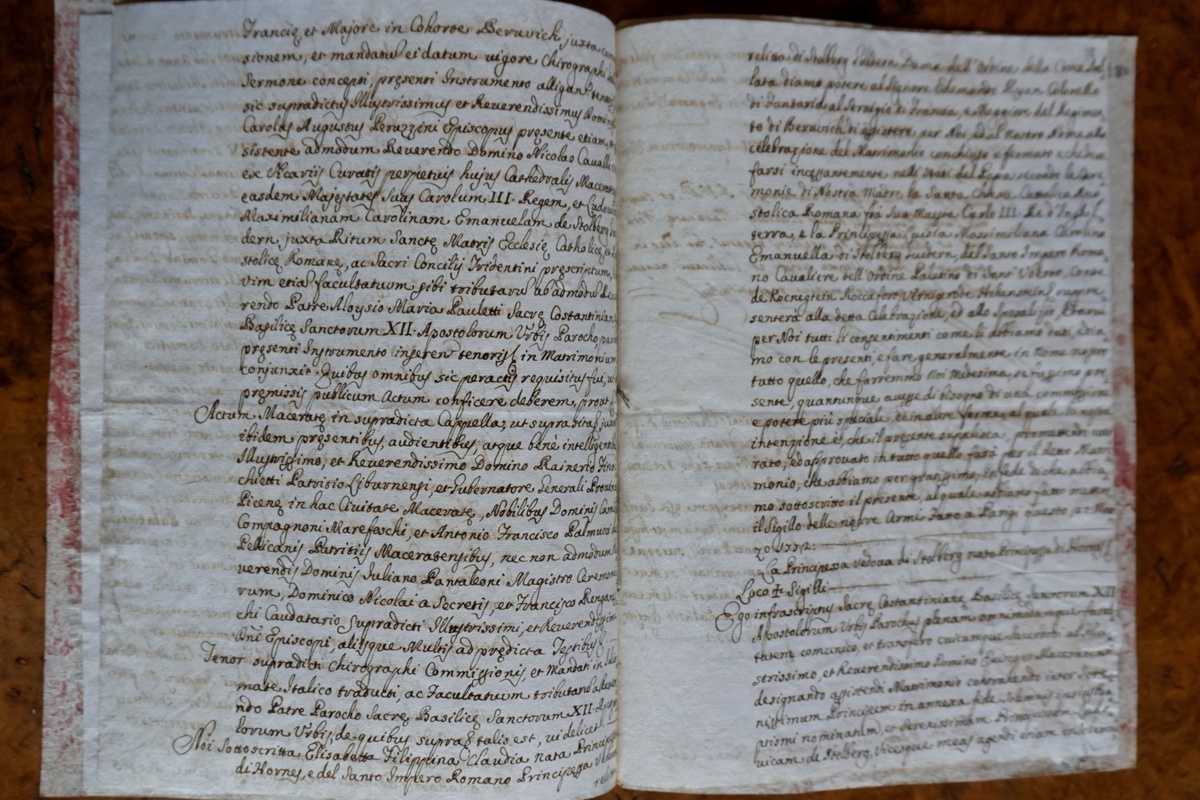 Franciæ, et Majore in Cohorte Beruvich juxta
sionem, et mandatū ei datum vigore Chirographi
Sermone concepti, presenti Instrumento alligan tenoris
sic supradictus Illustrissimus, et Reverendissimus Dominus
Carolus Augustus Peruzzini Episcopus presente etiam,
sistente admodum Reverendo Domino Nicolao Cavalla
ex Vicariis Curatis perpetuis hujus Cathedralis Macerate
easdem Majestates Suas Carolum III. Regem, et Ludovi
Maximilianam Carolinam Emanuelam de Stolberg
dern, juxta Ritum Sancte Matris Ecclesie Catholice
stolice Romane, ac Sacri Concilij Tridentini prescriptum,
vim etiā facultatuum sibi tributarū ab admodū
rendo Patre Aloysio Maria Pauletti Sacre Costantinian
Basilice Sanctorum XII. Apostolorum Urbis Parocho,
presenti Instrumento inseren tenoris in Matrimonium
conjunxit. Quibus omnibus sic peractis requisitus fui,
premissis publicum Actum conficere deberem, prout
Actum Macerate in supradicta Cappella, ut supra sita,
ibidem presentibus, audientibus, atque benè intelligent
Illustrissimo, et Reverendissimo Domino Rainerio Fino
chietti Patrisio Liburnensi, et Gubernatore Generali Provin
Picene in hac Civitate Macerate, Nobilibus Dominis
Compagnoni Marefoschi, et Antonio Francisco Palmucci
Pellicanis Patritiis Maceratensibus, nec non admodum
verendis Dominis Juliano Pantaleoni Magistro Ceremo
rum, Dominico Nicolai a Secretis, et Francisco
chi Caudatario supradicti Illustrissimi, et Reverendissimi
Dñi Episcopi, aliisque Multis ad predicta Testibus
Tenor supradicti Chirographi Commissionis, et Mandati in
mate Italico traducti, ac Facultatuum tributarū
ndo Patre Parocho Sacre Basilice Sanctorum XII. Aposto
lorum Urbis, de quibus supra talis est, videlicet
Noi Sottoscritta Elisabetta Filippina Claudia nata Principessa
di Hornes, e del Santo Impero Romano Principessa
relitta di Stolberg Guedern Dama dell'Ordine della Croce
lata diamo potere al Signore Edemondo Ryan Colonello
di Fantaria al Servigio di Francia, e Maggiore del Regimen
to di Beruvich di assistere per Noi, ed al Nostro Nome alla
celebrazione del Matrimonio conchiuso e fermato e che deve
farsi incessantemente nelli Stati del Papa secondo le Cere
monie di Nostra Madre la Santa Chiesa Catolica Apo
stolica Romana frà Sua Maestà Carlo III. Re d'Inghil
terra, e la Principessa Luisia Massimiliana Carolina
Emanuella di Stolberg Guedern, del Santo Impero Roma
no Cavaliere dell'Ordine Palatino di Sant'Uberto, Conte
de Kocnegstein Roccafort, Vernigerode Hohenstein, rappre
senterà alla detta Celebrazione, ed allo Sposalizio, e darà
per Noi tutti li consentimenti come li abbiamo dati, e dia
mo con le presenti, e fare generalmente in Nome nostro
tutto quello, che farremmo Noi Medesima, se fussimo pre
sente, quantunque avesse di bisogno di una commissione
e potere più speciale, et in altre forme, al quale la nostra
intenzione è, che il presente supplisca, promettendo
rato, ed approvato in tutto quello farà per il detto Matri
monio, che abbiamo per gratissimo, in fede di che abbia
mo sottoscritto il presente, al quale abbiamo fatto mettere
il Sigillo delle nostre Armi. Fatto a Parigi questo
1772:
La Principessa Vedova di Stolberg nata Principessa di Hornes
Loco ✝ Sigilli
Ego infrascriptus Sacre Costantiniane Basilice Sanctorum XII
Apostolorum Urbis Parochus plenam, omnimodam facul
tatem comunico, et transfero cuicumque Sacerdoti ab Illu
strissimo, et Reverendissimo Domino Episcopo Maceratensi
designando assistendi Matrimonio contrahendo inter Sere
nissimum Principem in annexa fide
prismi nominatum, et Serenissimam Principissam Ludo
vicam de Stolberg, vicesque meas agendi etiam